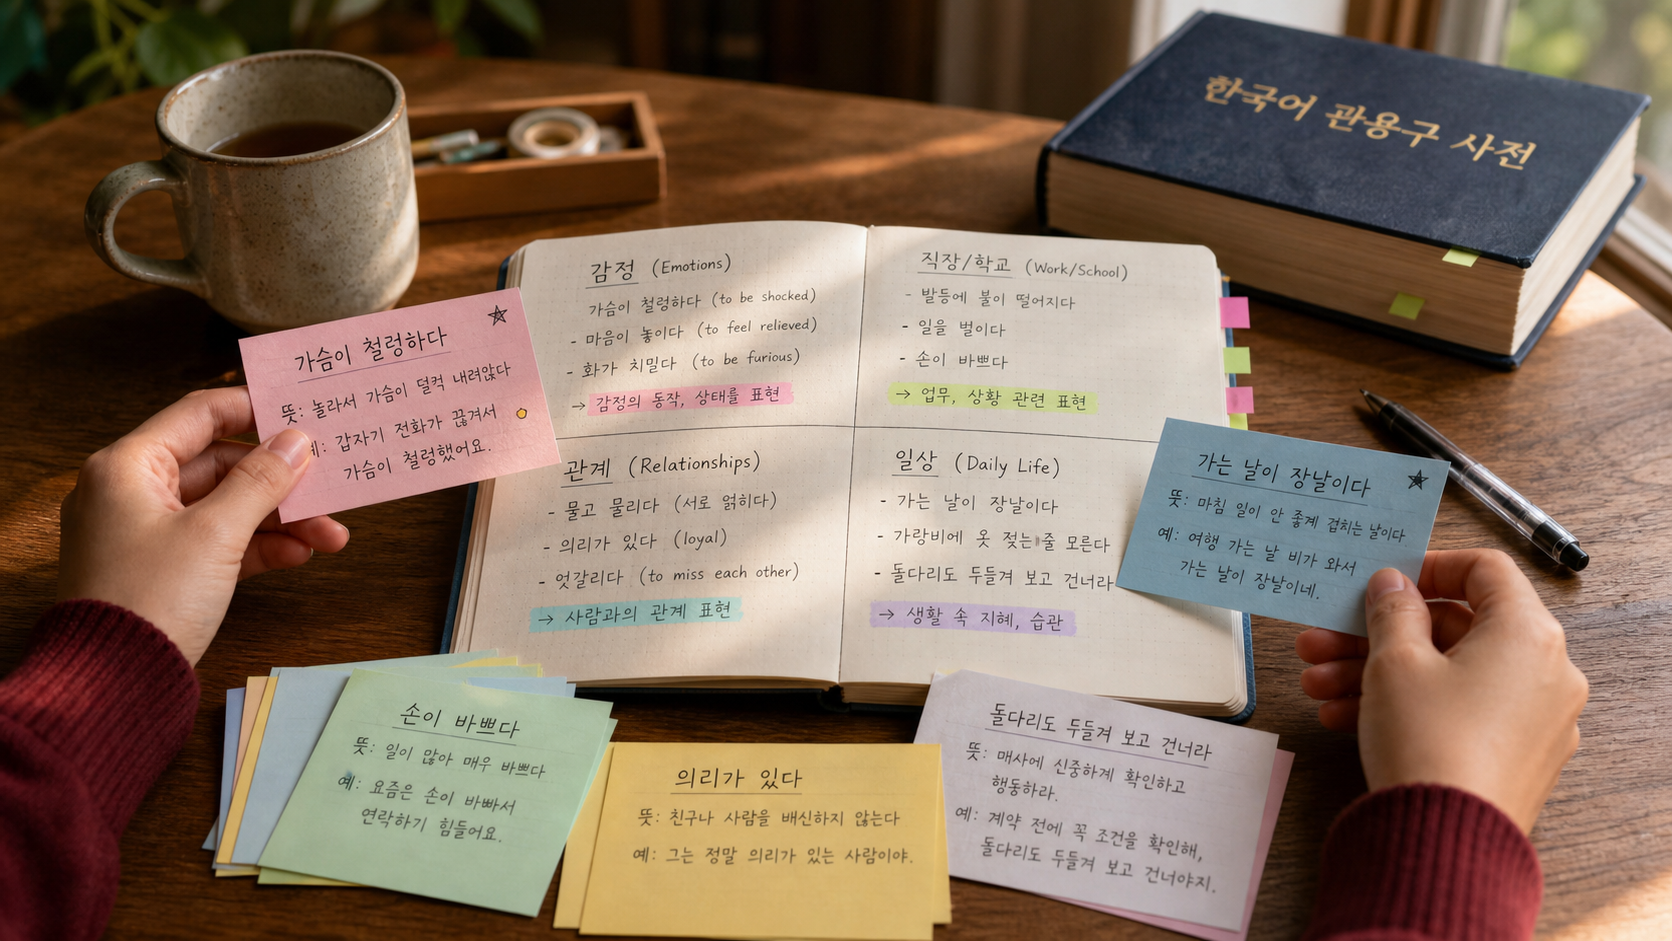 한국어 관용구 사전
감정 (Emotions)
가슴이 철렁하다 (to be shocked)
- 마음이 놓이다 (to feel relieved)
- 화가 치밀다 (to be furious)
→ 감정의 동작, 상태를 표현
직장/학교 (Work/School)
- 발등에 불이 떨어지다
- 일을 벌이다
- 손이 바쁘다
→ 업무, 상황 관련 표현
관계 (Relationships)
- 물고 물리다 (서로 얽히다)
- 의리가 있다 (loyal)
- 엇갈리다 (to miss each other)
→ 사람과의 관계 표현
일상 (Daily Life)
- 가는 날이 장날이다
- 가랑비에 옷 젖는 줄 모른다
- 돌다리도 두들겨 보고 건너라
→ 생활 속 지혜, 습관
가슴이 철렁하다
뜻: 놀라서 가슴이 덜컥 내려앉다
예: 갑자기 전화가 끊겨서
가슴이 철렁했어요.
가는 날이 장날이다
뜻: 마침 일이 안 좋게 겹치는 날이다
예: 여행 가는 날 비가 와서
가는 날이 장날이네.
손이 바쁘다
뜻: 일이 많아 매우 바쁘다
예: 요즘은 손이 바빠서
연락하기 힘들어요.
의리가 있다
뜻: 친구나 사람을 배신하지 않는다
예: 그는 정말 의리가 있는 사람이야.
돌다리도 두들겨 보고 건너라
뜻: 매사에 신중하게 확인하고
행동하라.
예: 계약 전에 꼭 조건을 확인해,
돌다리도 두들겨 보고 건너야지.